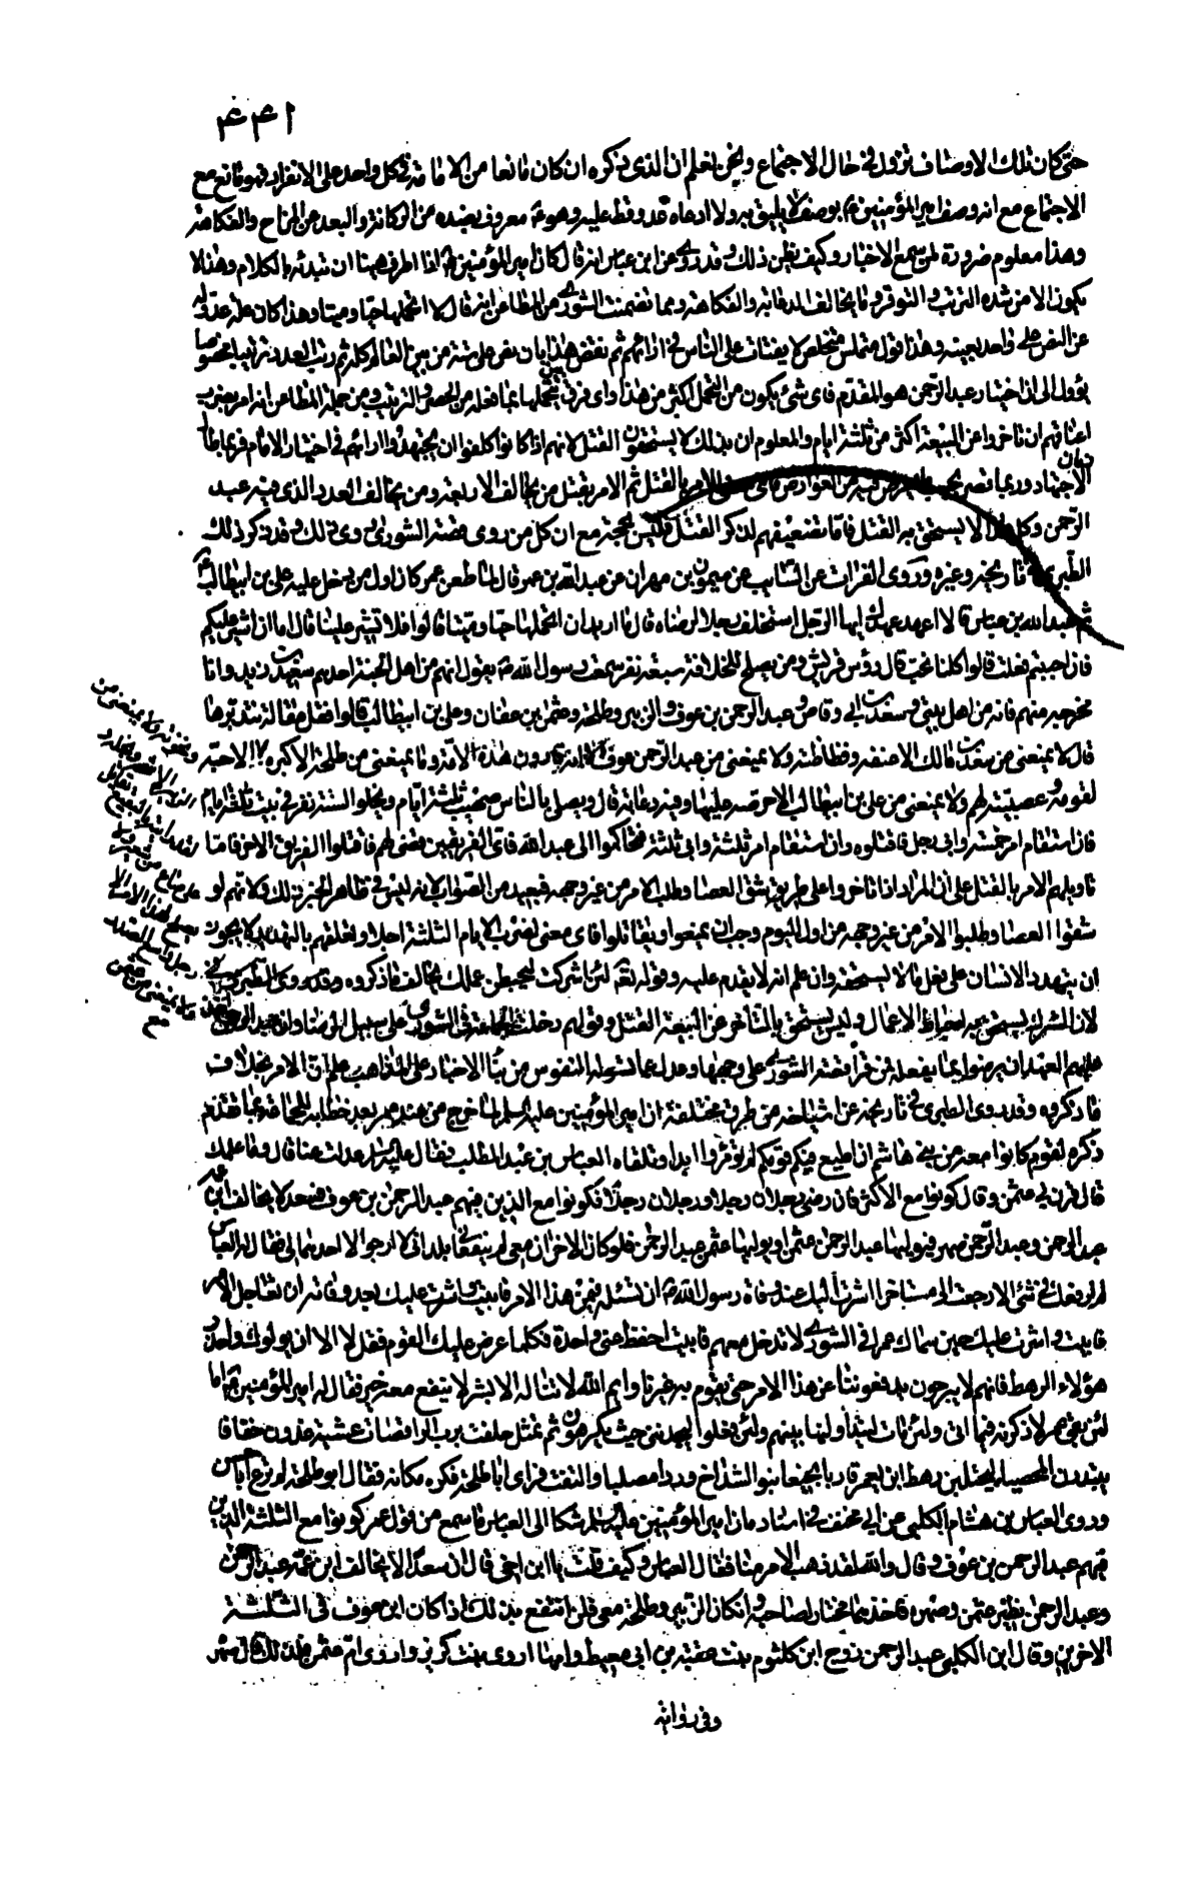 ٤٤١
حتى كان تلك الاوصاف تزول في حال الاجتماع ونحن نعلم ان الذي ذكره ان كان مانعا من الامامة في كل واحد على الانفراد فهو مانع مع
الاجتماع مع انه وصف امير المؤمنين ع بوصف لا يليق به ولا ادعاه قط عليه وهو معروف بضده من الركانة والبعد من المزاح والفكاهة
وهذا معلوم ضرورة لمن سمع الاخبار وكيف يظن ذلك وقد روى عن ابن عباس انه قال كان امير المؤمنين اذا اطرق هبنا ان نبتدئه بالكلام وهذا لا
يكون الا من شدة التزمت والتوقر وما يخالف الدعابة والفكاهة ومما تضمنت الشورى من المطاعن انه قال لا اتحملها حيا وميتا وهذا كان علة عدوله
عن النص على واحد بعينه وهذا قول متملس متخلص لا يفتات على الناس في ارائهم ثم نقض هذا بان نص على ستة من بين العالم كله ثم رتب العدد ترتيبا مخصوصا
يؤول الى ان اختيار عبد الرحمن هو المقدم فاى شئ يكون من التحمل اكثر من هذا واى فرق بين تحملها بما فعله من الحصر والترتيب ومن جملة المطاعن انه امر بضرب
اعناقهم ان تاخروا عن البيعة اكثر من ثلثة ايام والمعلوم ان بذلك لا يستحقون القتل لانهم اذا كانوا كلفوا ان يجتهدوا ارائهم في اختيار الامام فربما طال
زمان الاجتهاد وربما قصر بحسب ما يعرض فيه من العوارض فاى معنى للامر بالقتل ثم الامر بقتل من يخالف الاربعة ومن يخالف العدد الذي فيه عبد
الرحمن وكل ذلك لا يستحق به القتل فاما تضعيفهم لذكر القتل فليس بحجة مع ان كل من روى قصة الشورى روى ذلك وقد ذكر ذلك
الطبري في تاريخه وغيره وروى الفرات عن السائب عن ميمون بن مهران عن عبد الله بن عمر قال لما طعن عمر كان اول من دخل عليه علي بن ابيطالب
ثم عبد الله بن عباس قالا اعهد عهدك ايها الرجل استخلف رجلا نرضاه قال ما اريد ان اتحملها حيا وميتا قالوا فلا تشير علينا قال اما ان اشير عليكم
فان احببتم فعلت قالوا كلنا نحب قال رؤس قريش ومن يصلح للخلافة سبعة نفر سمعت رسول الله ص يقول انهم من اهل الجنة احدهم سعيد بن زيد وانا
مخرجه منهم فانه من اهل بيتي وسعد بن ابي وقاص وعبد الرحمن بن عوف والزبير وطلحة وعثمن بن عفان وعلي بن ابيطالب قالوا فقل مقالة نتدبرها
قال لا يمنعني من سعد بن مالك الا عنفه وفظاظته ولا يمنعني من عبد الرحمن بن عوف الا انه قارون هذه الامة وما يمنعني من طلحة الا كبره
لقومه وعصبيته لهم ولا يمنعني من علي بن ابيطالب الا حرصه عليها وفيه دعابة قال ويصلي بالناس صهيب ثلثة ايام ويخلو الستة نفر في بيت ثلثة ايام
فان استقام امر خمسة وابى رجل فاقتلوه وان استقام امر ثلثة وابى ثلثة فحاكموا الى عبد الله فاى الفريقين قضى لهم فاقتلوا الفريق الاخر فاما
تاويلهم الامر بالقتل على ان المراد اذا تاخروا على طريق شق العصا وطلب الامر من غير وجهه فبعيد من الصواب لانه ليس في ظاهر الخبر ذلك ولانهم لو
شقوا العصا وطلبوا الامر من غير وجهه من اول اليوم وجب ان يمنعوا ويقاتلوا فاى معنى لضرب الايام الثلثة اجلا وتعلقهم بالتهديد لا يجوز
ان يتهدد الانسان على فعل ما لا يستحقه وان علم انه لا يقدم عليه وقوله تعالى لئن اشركت ليحبطن عملك يخالف ما ذكروه
لان الشرك يستحق به احباط الاعمال وليس يستحق بالتاخر عن البيعة القتل وقولهم دخلت الجماعة في الشورى على سبيل الرضا وان عبد الرحمن اخذ
عليهم العهد ان يرضوا بما يفعله فمن قرأ قصة الشورى على وجهها وعدل عما تسوله النفوس من بناء الاخبار على المذاهب علم ان الامر بخلاف
ما ذكروه وقد روى الطبري في تاريخه عن اشياخه من طرق مختلفة ان امير المؤمنين عليه السلم لما خرج من عند عمر بعد خطابه للجماعة بما تقدم
ذكره لقوم كانوا معه من بني هاشم ان اطيع فيكم قومكم لم تؤمروا ابدا وتلقاه العباس بن عبد المطلب فقال عليه السلم عدلت عنا قال وما علمك
قال قرن بي عثمن وقال كونوا مع الاكثر فان رضى رجلان رجلا ورجلان رجلا فكونوا مع الذين فيهم عبد الرحمن بن عوف فسعد لا يخالف ابن عمه
عبد الرحمن وعبد الرحمن صهر عثمن فيوليها عبد الرحمن عثمن او يوليها عثمن عبد الرحمن فلو كان الاخران معي لم ينفعاني بله اني لا ارجو الا احدهما فقال له العباس
لم ارفعك في شئ الا رجعت الى مستاخرا اشرت اليك عند وفاة رسول الله ص ان تسئله فيمن هذا الامر فابيت واشرت عليك بعد وفاته ان تعاجل الامر
فابيت واشرت عليك حين سماك عمر في الشورى لا تدخل معهم فابيت احفظ عني واحدة فكلما عرض عليك القوم فقل لا الا ان يولوك واحذر
هؤلاء الرهط فانهم لا يبرحون يدفعوننا عن هذا الامر حتى يقوم به غيرنا وايم الله لا تناله الا بشر لا ينفع معه خير فقال له امير المؤمنين اما
لئن بقى عمر لاذكرنه فيما اتى ولئن مات ليتداولنها بينهم ولئن فعلوا ليجدنني حيث يكرهون ثم تمثل حلفت برب الراقصات عشية غدون خفافا
يبتدرن المحصبا ليختلين رهط ابن يعمر قاربا نجيعا بنو الشداخ وردا مصلبا والتفت فراى ابا طلحة فكره مكانه فقال ابو طلحة لم ترع ابا حسن
وروى العباس بن هشام الكلبي عن ابي مخنف في اسناده ان امير المؤمنين عليه السلم شكا الى العباس ما سمع من قول عمر كونوا مع الثلثة الذين
فيهم عبد الرحمن بن عوف وقال والله لقد ذهب الامر منا فقال العباس وكيف قلت يا ابن اخي قال ان سعدا لا يخالف ابن عمه عبد الرحمن
وعبد الرحمن نظير عثمن وصهره فاحدهما مختار لصاحبه وان كان الزبير وطلحة معي فلن انتفع بذلك اذا كان ابن عوف في الثلثة
الاخرين وقال ابن الكلبي عبد الرحمن زوج ابن كلثوم بنت عقبة بن ابي معيط وامها اروى بنت كريز واروى ام عثمن فلذلك قال صهر
وفى رواية